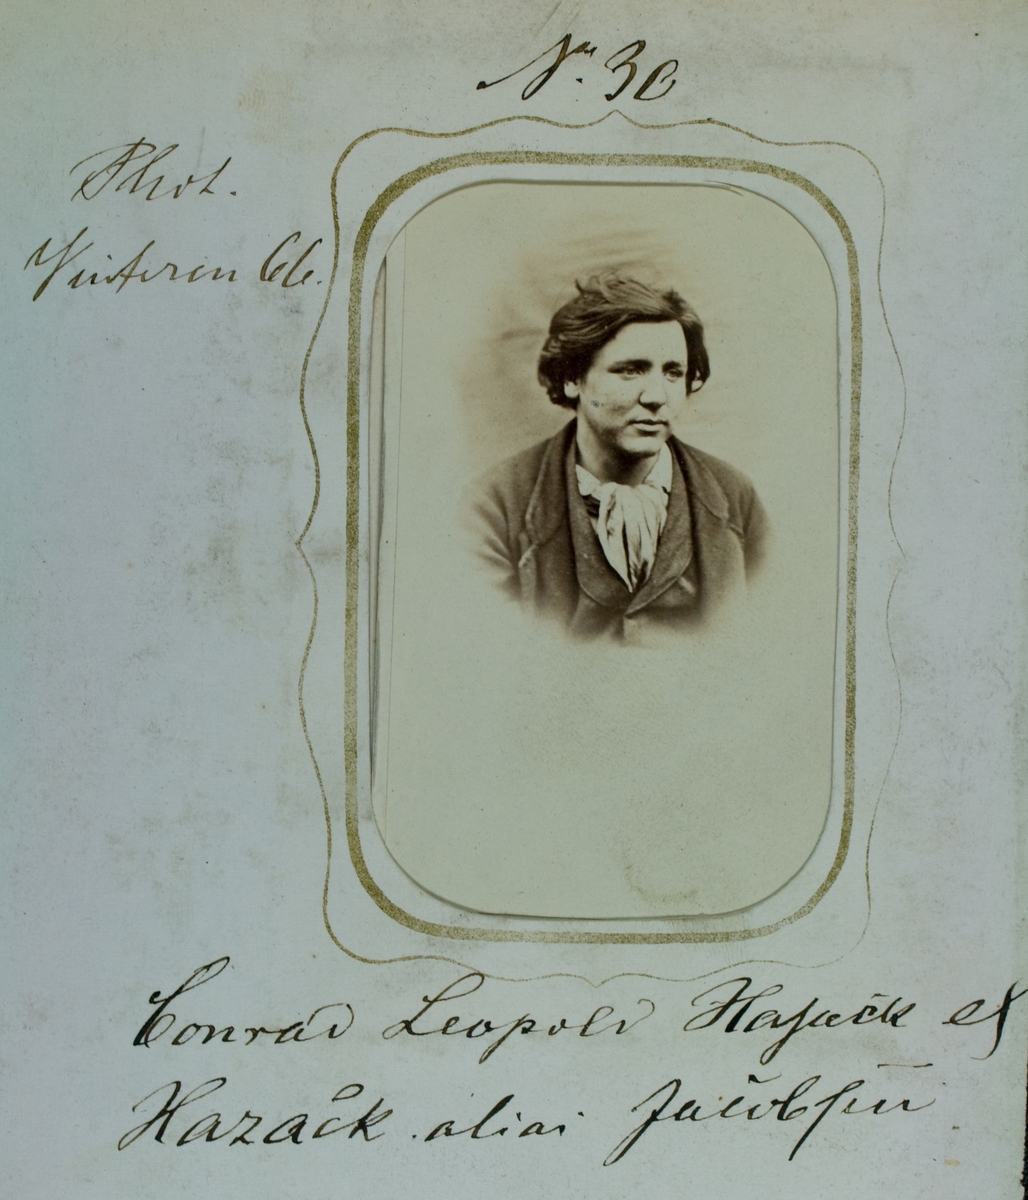 No. 30
Phot.
Vinteren 66.
Conrad Leopold Hasack el
Hazack alias Jacobsen